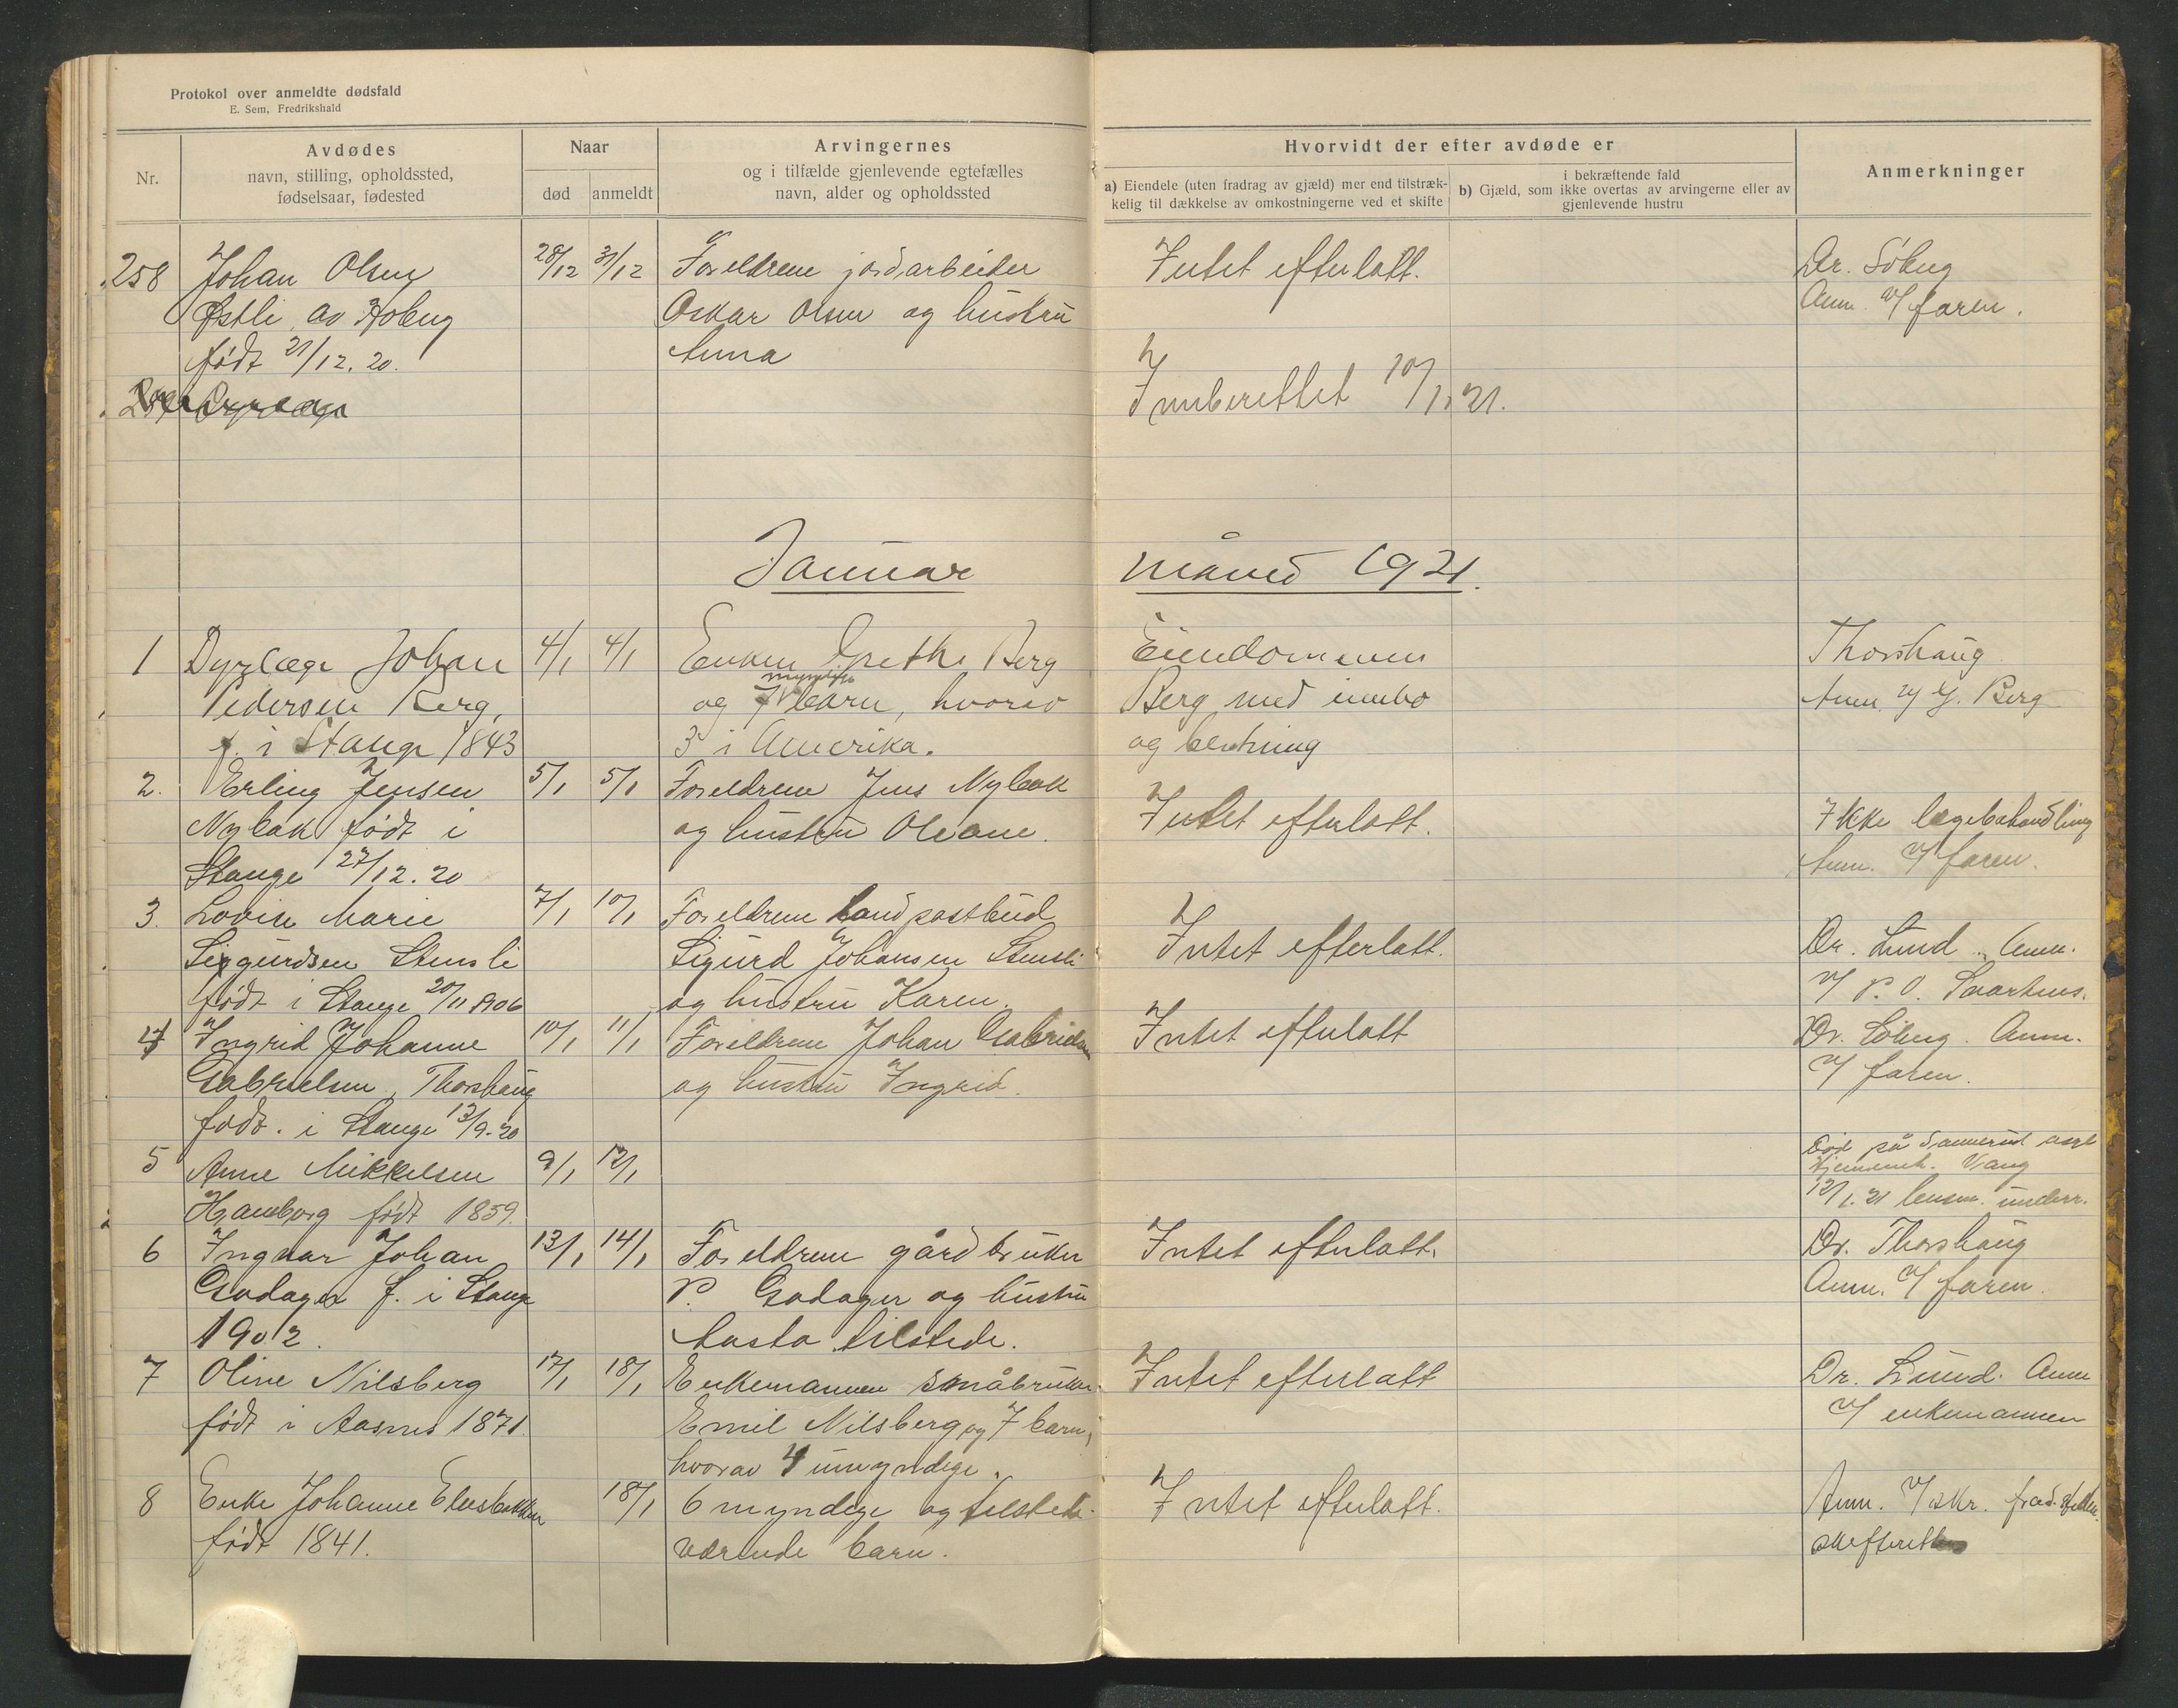 Protokol over anmeldte dødsfald
E. Sem, Fredrikshald
Nr.
Avdødes
navn, stilling, opholdssted,
fødselsaar, fødested
Naar
død
anmeldt
Arvingernes
og i tilfælde gjenlevende egtefælles
navn, alder og opholdssted
Hvorvidt der efter avdøde er
a) Eiendele (uten fradrag av gjæld) mer end tilstræk-
kelig til dækkelse av omkostningerne ved et skifte
i bekræftende fald
b) Gjæld, som ikke overtas av arvingerne eller av
gjenlevende hustru
Anmerkninger
258 Johan Olsen 28/12 31/12 Foreldrene jordarbeider Intet efterlatt. Dr. Söberg
Østli av Hoberg Oskar Olsen og hustru Anm. v/ faren.
født 21/12.20. Anna
259
Innberettet 10/1.21.
Januar måned 1921.
1 Dyrlæge Johan 4/1 4/1 Enken Grethe Berg Eiendommen Thorshaug
Pedersen Berg, og 7 myndige barn, hvorav Berg med innbo Anm. v/ G. Berg
f. i Stange 1843 3 i Amerika. og besetning
2. Erling Jensen 5/1 5/1 Foreldrene Jens Nybak Intet efterlatt. Ikke lægebehandling
Nybak født i og hustru Oleane. Anm. v/ faren.
Stange 27/12.20
3. Lovise Marie 7/1 10/1 Foreldrene landpostbud Intet efterlatt. Dr. Lund. Anm.
Sigurdsen Stensli Sigurd Johansen Stensli v/ P. O.
født i Stange 20/11 1906 og hustru Karen.
4 Ingrid Johanne 10/1 11/1 Foreldrene Johan Gabrielsen Intet efterlatt Dr. Söberg. Anm.
Gabrielsen, Thorshaug og hustru Ingrid. v/ faren.
født. i Stange 13/9.20
5 Anne Mikkelsen 9/1 12/1 Død på Sannerud asyl
Hamborg født 1859. Vang
12/1.21 lensm. underr.
6 Ingvar Johan 13/1 14/1 Foreldrene gårdbruker Intet efterlatt. Dr. Thorshaug
Godager f. i Stange P. Godager og hustru Anm. v/ faren.
1902. Aasta tilstede.
7 Oline Nilsberg 17/1 18/1 Enkemannen småbruker Intet efterlatt Dr. Lund. Anm
født i Aasnes 1871. Emil Nilsberg og 7 barn, v/ enkemannen
hvorav 4 umyndige.
8 Enke Johanne 18/1 6 myndige og tilstede- Intet efterlatt. Anm. v/ skr. fra
født 1841. værende barn. skifteretten